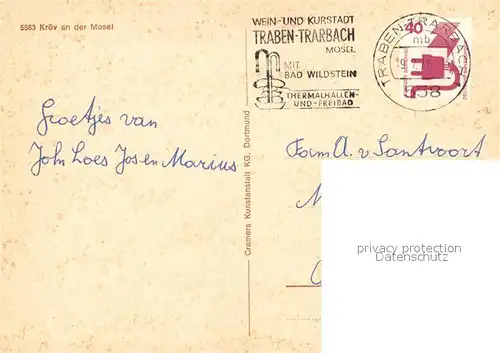 5563 Kröv an der Mosel
WEIN-UND KURSTADT
TRABEN-TRARBACH
MOSEL
MIT
BAD WILDSTEIN
THERMALHALLEN-
UND-FREIBAD
TRABEN-TRARBACH
mb
58
40
Groetjes van
John Loes Jos en Marius
Cramers Kunstanstalt KG, Dortmund
Fam A. v Santvoort
privacy protection
Datenschutz